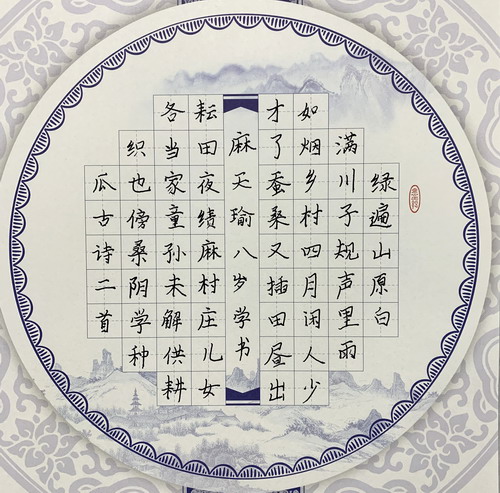 绿遍山原白
满川子规声里雨
如烟乡村四月闲人少
才了蚕桑又插田昼出
麻天瑜八岁学书
耘田夜绩麻村庄儿女
各当家童孙未解供耕
织也傍桑阴学种
瓜古诗二首